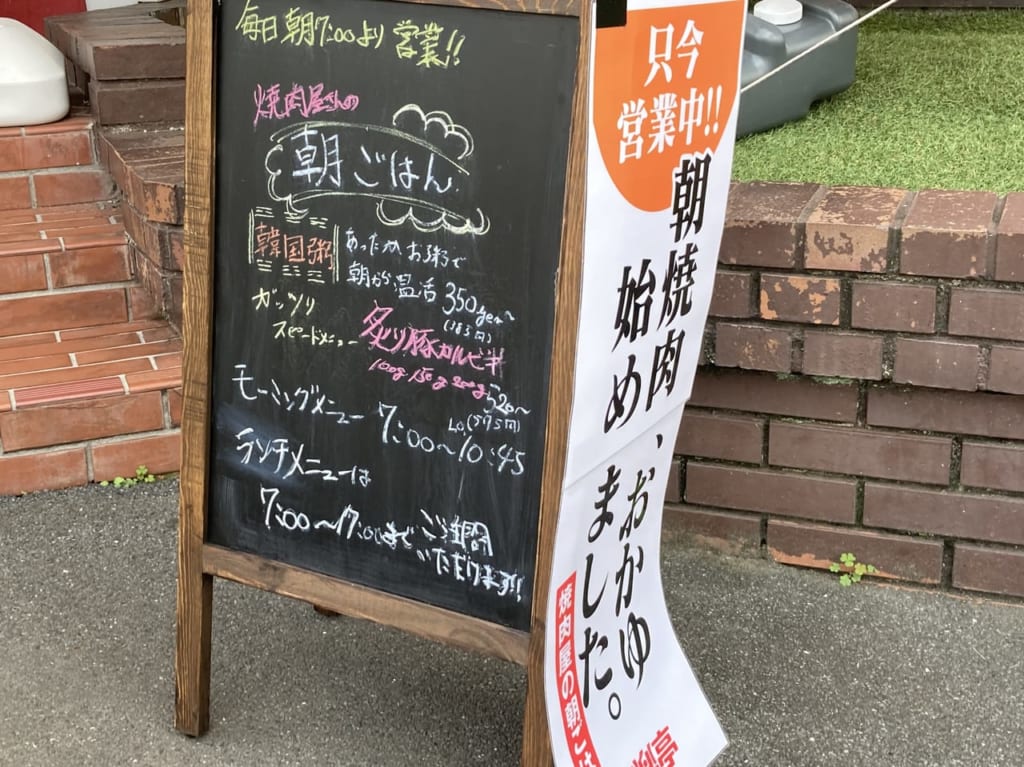 毎日朝7:00より営業!!
焼肉屋さんの
朝ごはん
韓国粥
あったかお粥で
朝から温活 350yen〜
(385円)
ガッツリ
スピードメニュー
炙り豚カルビ丼
100g 150g 200g 520〜
(575円)
モーニングメニュー 7:00〜10:45
LO
ランチメニューは
7:00〜17:00まで ご注文
いただけます!!
只今
営業中!!
朝焼肉、おかゆ
始めました。
焼肉屋の朝ごは
亭